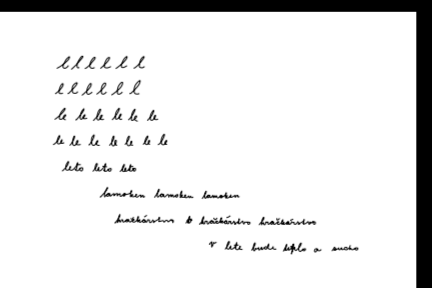 l l l l l l
l l l l l l
le le le le le le
le le le le le le le
leto leto leto
hračkárstvo hračkárstvo hračkárstvo
v lete bude teplo a sucho